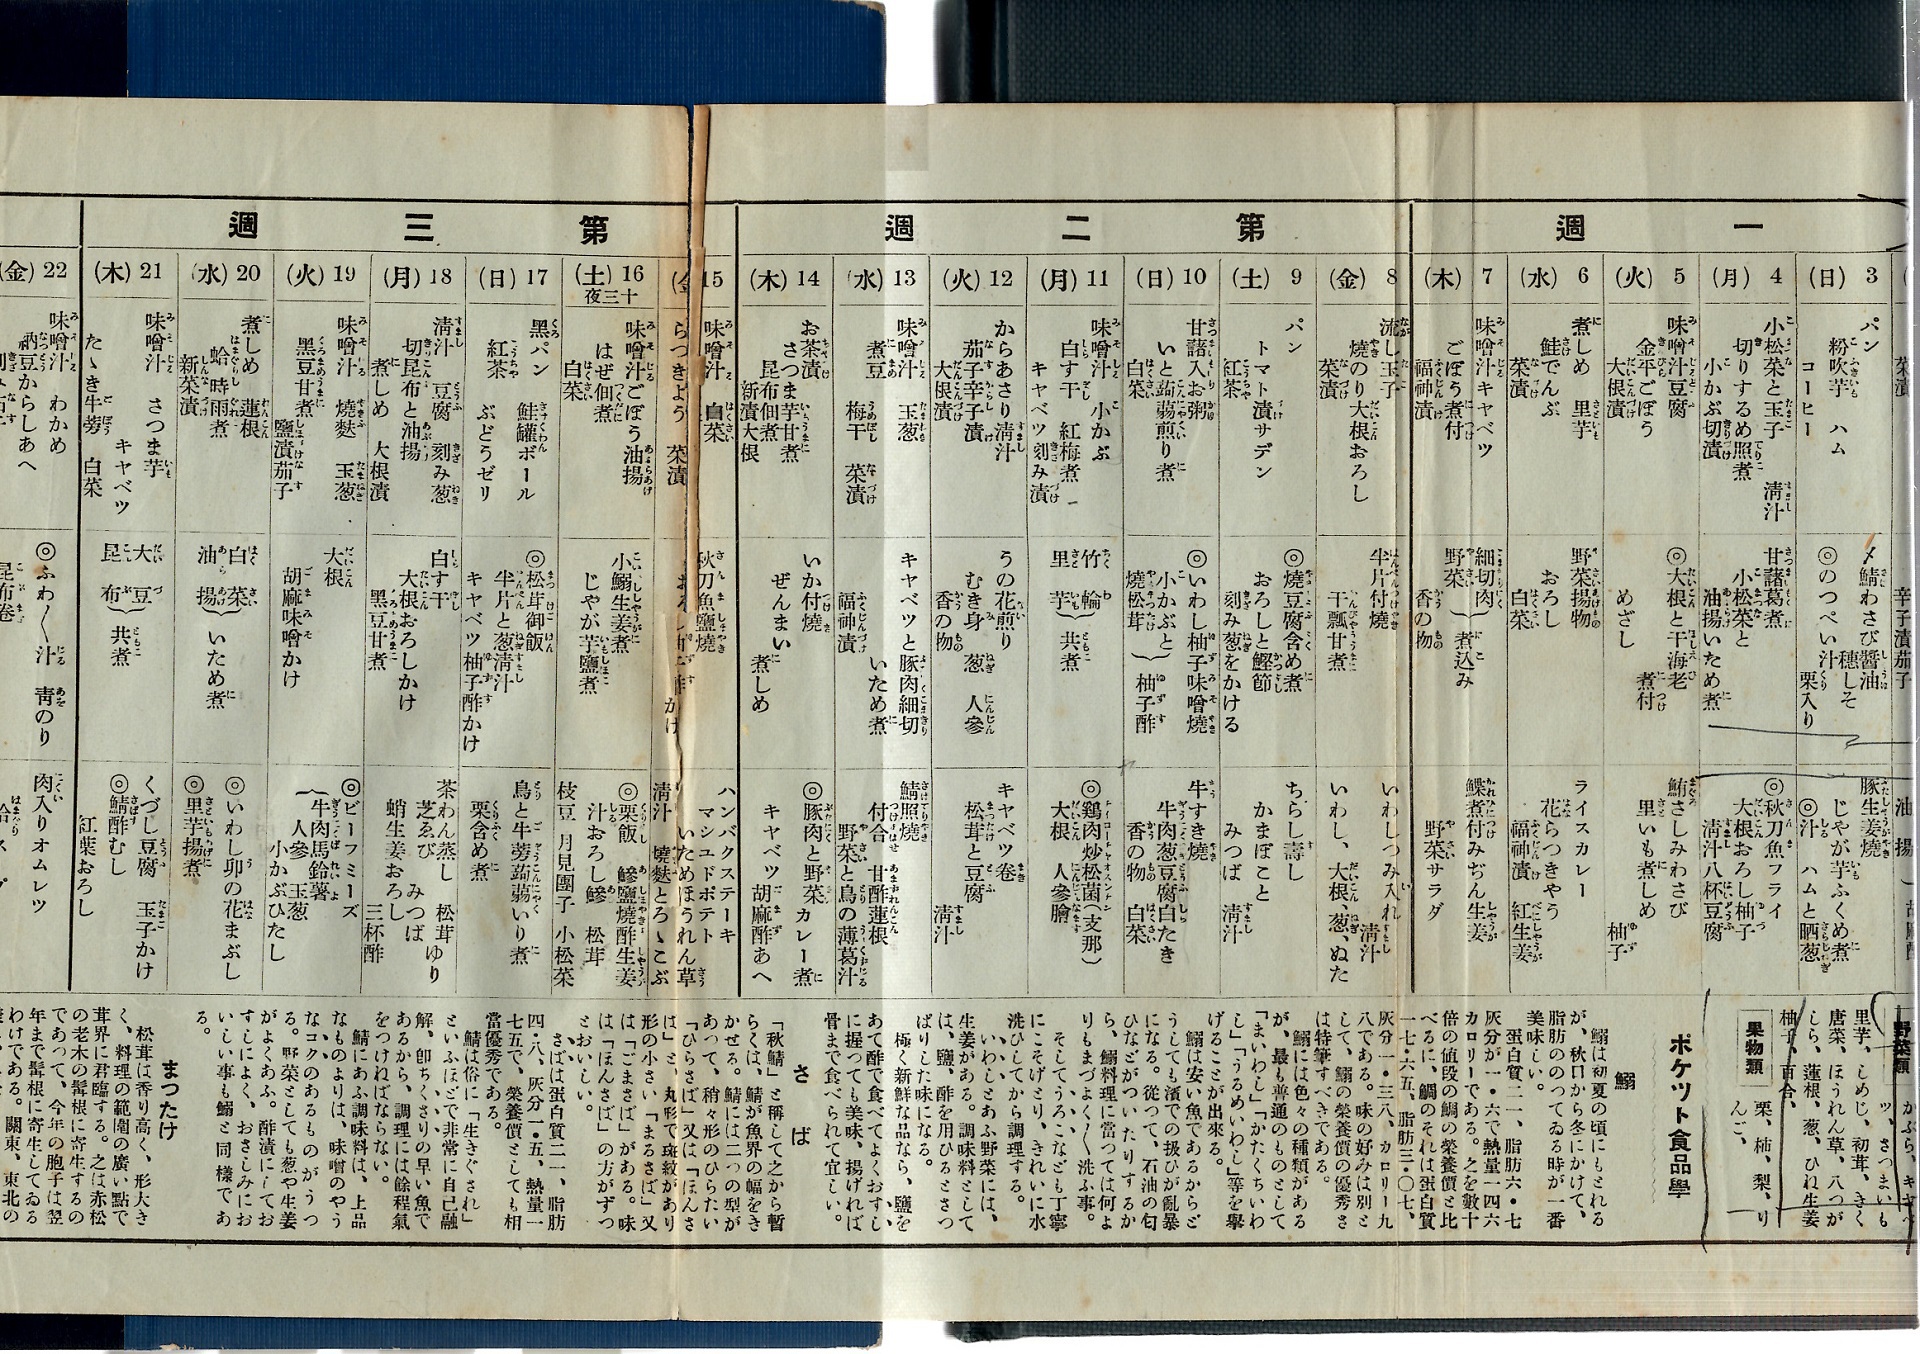 第一週
第二週
第三週
3
(日)
パン
粉吹芋 ハム
コーヒー
〆鯖わさび醬油
穗しそ
◎のつぺい汁 栗入り
豚生姜燒
じやが芋ふくめ煮
◎汁 ハムと晒葱
4
(月)
小松菜と玉子 淸汁
切りするめ照煮
小かぶ切漬
甘藷葛煮
小松菜と
油揚いため煮
◎秋刀魚フライ
大根おろし柚子
淸汁八杯豆腐
5
(火)
味噌汁豆腐
金平ごぼう
大根漬
◎大根と干海老
煮付
めざし
鮪さしみわさび
里いも煮しめ
柚子
6
(水)
煮しめ 里芋
鮭でんぶ
菜漬
野菜揚物
おろし
白菜
ライスカレー
花らつきやう
福神漬 紅生姜
7
(木)
味噌汁キャベツ
ごぼう煮付
福神漬
細切肉
野菜
煮込み
香の物
鰈煮付みぢん生姜
野菜サラダ
8
(金)
流し玉子
燒のり大根おろし
菜漬
半片付燒
干瓢甘煮
いわしつみ入れ 淸汁
いわし、大根、葱、ぬた
9
(土)
パン
トマト漬サデン
紅茶
◎燒豆腐含め煮
おろしと鰹節
刻み葱をかける
ちらし壽し
かまぼこと
みつば 淸汁
10
(日)
甘諸入お粥
いと蒟蒻煎り煮
白菜
◎いわし柚子味噌燒
小かぶと
燒松茸
柚子酢
牛すき燒
牛肉葱豆腐白たき
香の物 白菜
11
(月)
味噌汁 小かぶ
白す干 紅梅煮
キャベツ刻み漬
竹輪
里芋
共煮
◎鷄肉炒松菌(支那)
大根 人參膾
12
(火)
からあさり淸汁
茄子辛子漬
大根漬
うの花煎り
むき身 葱 人參
香の物
キャベツ卷
松茸と豆腐
淸汁
13
(水)
味噌汁 玉葱
煮豆
梅干 菜漬
キャベツと豚肉細切
いため煮
福神漬
鯖照燒
付合 甘酢蓮根
野菜と鳥の薄葛汁
14
(木)
お茶漬
さつま芋甘煮
昆布佃煮
新漬大根
いか付燒
ぜんまい
煮しめ
◎豚肉と野菜
カレー煮
キャベツ 胡麻酢あへ
15
(金)
味噌汁 白菜
らつきよう 菜漬
秋刀魚鹽燒
ハンバクステーキ
マシユドポテト
いためほうれん草
淸汁 燒麩とろゝこぶ
16
(土)
十三夜
味噌汁ごぼう油揚
はぜ佃煮
白菜
小鰯生姜煮
じやが芋鹽煮
◎栗飯 鰺鹽燒酢生姜
汁おろし鰺 松茸
枝豆 月見團子 小松菜
17
(日)
黑パン 鮭罐ボール
紅茶 ぶどうゼリ
◎松茸御飯
半片と葱淸汁
キャベツ柚子酢かけ
鳥と牛蒡蒟蒻いり煮
栗含め煮
18
(月)
淸汁 豆腐 刻み葱
切昆布と油揚
煮しめ 大根漬
白す干
大根おろしかけ
黑豆甘煮
茶わん蒸し 松茸 ゆり
芝ゑび みつば
蛸生姜おろし
三杯酢
19
(火)
味噌汁 燒麩 玉葱
黑豆甘煮
鹽漬茄子
大根
胡麻味噌かけ
◎ビーフミーズ
牛肉馬鈴薯
人參 玉葱
小かぶひたし
20
(水)
煮しめ 蓮根
蛤時雨煮
新菜漬
白菜
油揚
いため煮
◎いわし卯の花まぶし
◎里芋揚煮
21
(木)
味噌汁 さつま芋
キャベツ
たゝき牛蒡 白菜
大豆
昆布
共煮
くづし豆腐 玉子かけ
◎鯖酢むし
紅葉おろし
22
(金)
味噌汁 わかめ
納豆からしあへ
◎ふわ〱汁 靑のり
昆布卷
肉入りオムレツ
野菜類
里芋、しめじ、初茸、きく
唐菜、ほうれん草、八つが
しら、蓮根、葱、ひね生姜
柚子、百合、
果物類
栗、柿、梨、り
んご、
ポケツト食品學
鰯
鰯は初夏の頃にもとれる
が、秋口から冬にかけて、
脂肪ののつてゐる時が一番
美味しい。
蛋白質二一、脂肪六・七
灰分が一・六で熱量一四六
カロリーである。之を數十
倍の値段の鯛の榮養價と比
べるに、鯛のそれは蛋白質
一七・六五、脂肪三・〇七、
灰分一・三八、カロリー九
八である。味の好みは別と
して、鰯の榮養價の優秀さ
は特筆すべきである。
鰯には色々の種類がある
が、最も普通のものとして
「まいわし」「かたくちいわ
し」「うるめいわし」等を擧
げることが出來る。
鰯は安い魚であるからど
うしても濱での扱ひが亂暴
になる。從つて、石油の匂
ひなどがついたりするか
ら、鰯料理に當つては何よ
りもまづよく〱洗ふ事。
そしてうろこなども丁寧
にこそげとり、きれいに水
洗ひしてから調理する。
いわしとあふ野菜には、
生姜がある。調味料として
は、鹽、酢を用ひるとさつ
ぱりした味になる。
極く新鮮な品なら、鹽を
あて酢で食べてよくおすし
に握つても美味、揚げれば
骨まで食べられて宜しい。
さば
「秋鯖」と稱して之から暫
らくは、鯖が魚界の幅をき
かせる。鯖には二つの型が
あつて、稍々形のひらたい
「ひらさば」又は「ほんさ
ば」と、丸形で斑紋があり
形の小さい「まるさば」又
は「ごまさば」がある。味
は「ほんさば」の方がずつ
とおいしい。
さばは蛋白質二一、脂肪
四・八、灰分一・五、熱量一
七五で、榮養價としても相
當優秀である。
鯖は俗に「生きぐされ」
といふほどで非常に自己融
解、卽ちくさりの早い魚で
あるから、調理には餘程氣
をつければならない。
鯖にあふ調味料は、上品
なものよりは、味噌のやう
な、コクのあるものがうつ
る。野菜としても葱や生姜
がよくあふ。酢漬にしてお
すしによく、おさしみにお
いしい事も鰯と同樣であ
る。
まつたけ
松茸は香り高く、形大き
く、料理の範圍の廣い點で
茸界に君臨する。之は赤松
の老木の鬚根に寄生するの
であつて、今年の胞子は翌
年まで鬚根に寄生してゐる
わけである。關東、東北の